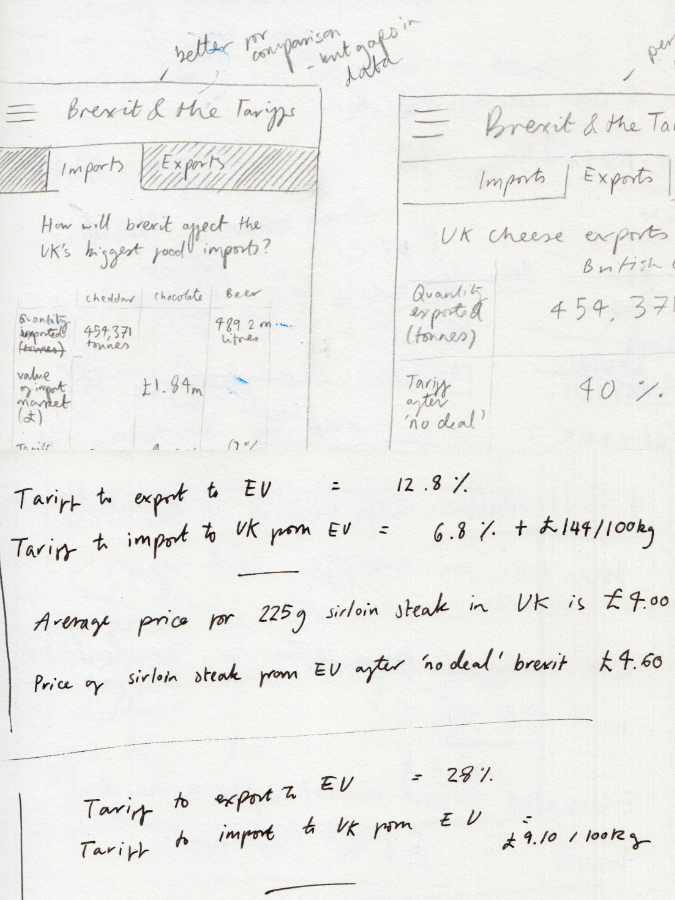 better for
comparison
- but gaps in
data
Brexit & the Tariffs
Imports Exports
How will brexit affect the
UK's biggest food imports?
cheddar chocolate Beer
Quantity
imported
(tonnes)
454,371
tonnes
489.2 m
litres
value
of import
market
(£)
£1.84m
Brexit & the Ta
Imports Exports
UK cheese exports
British
Quantity
exported
(tonnes)
454,371
Tariff
after
'no deal'
40 %
Tariff to export to EU = 12.8 %
Tariff to import to UK from EU = 6.8 % + £144/100kg
Average price for 225g sirloin steak in UK is £4.00
Price of sirloin steak from EU after 'no deal' brexit £4.60
Tariff to export to EU = 28%
Tariff to import to UK from EU = £9.10 / 100kg